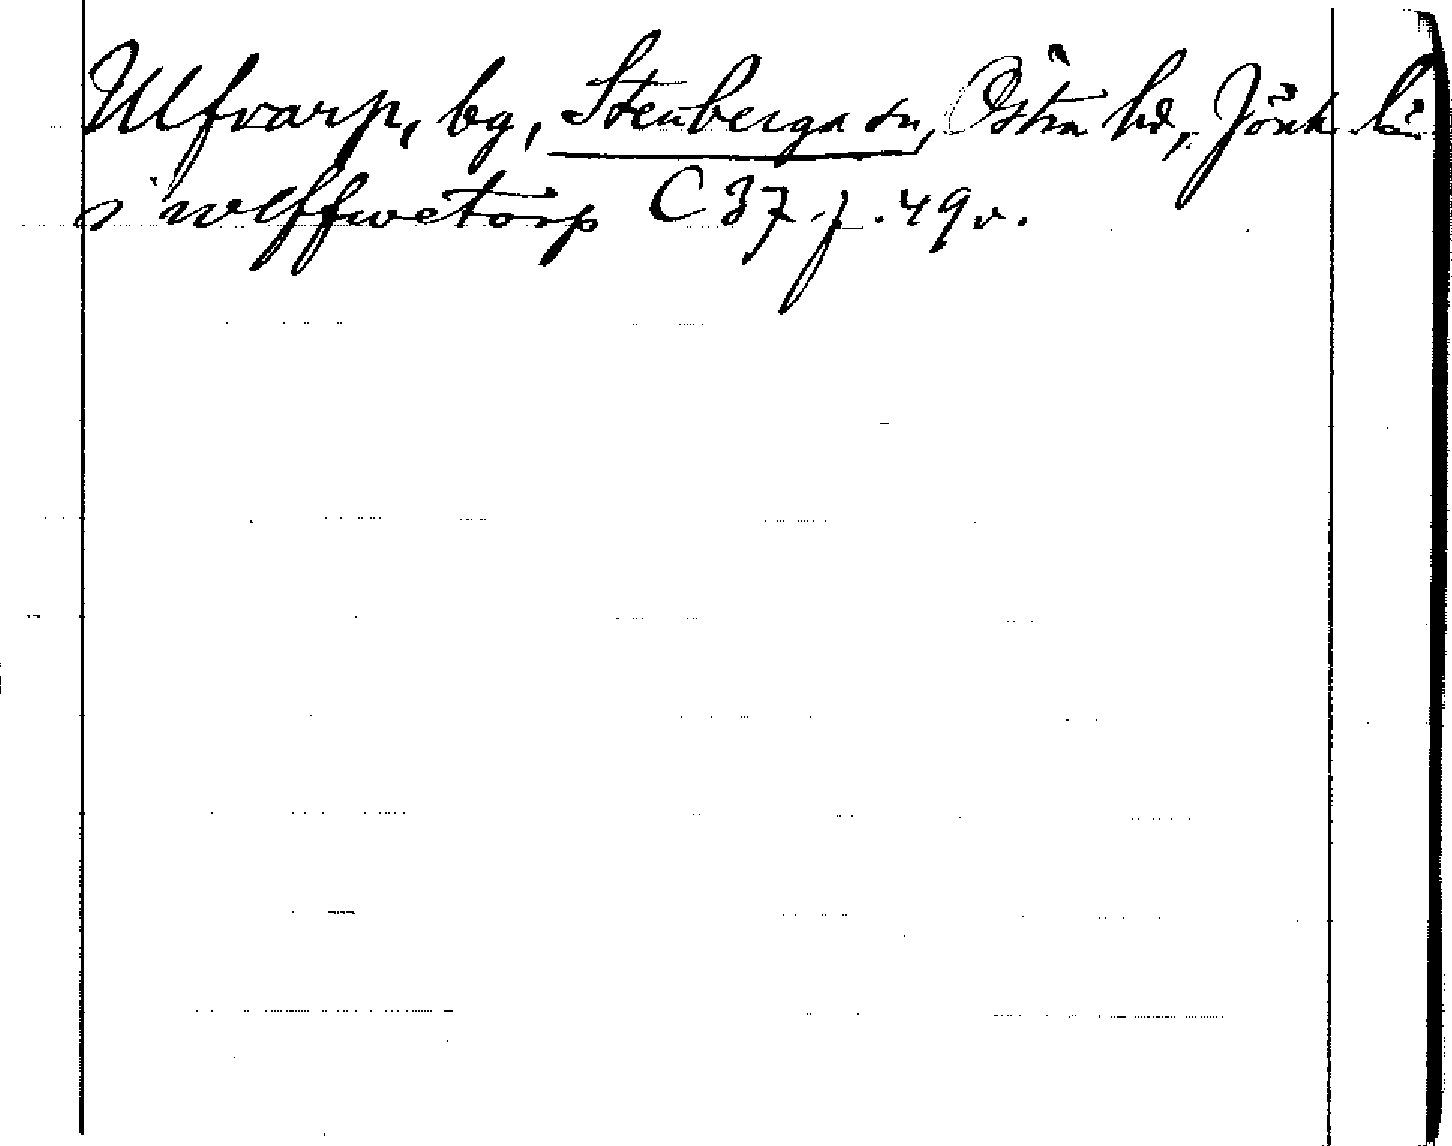 Ulfvarp, bg, Stenberga sn, Östra hd, Jönk lä
i wlffwetorp C 37 f. 49 v.